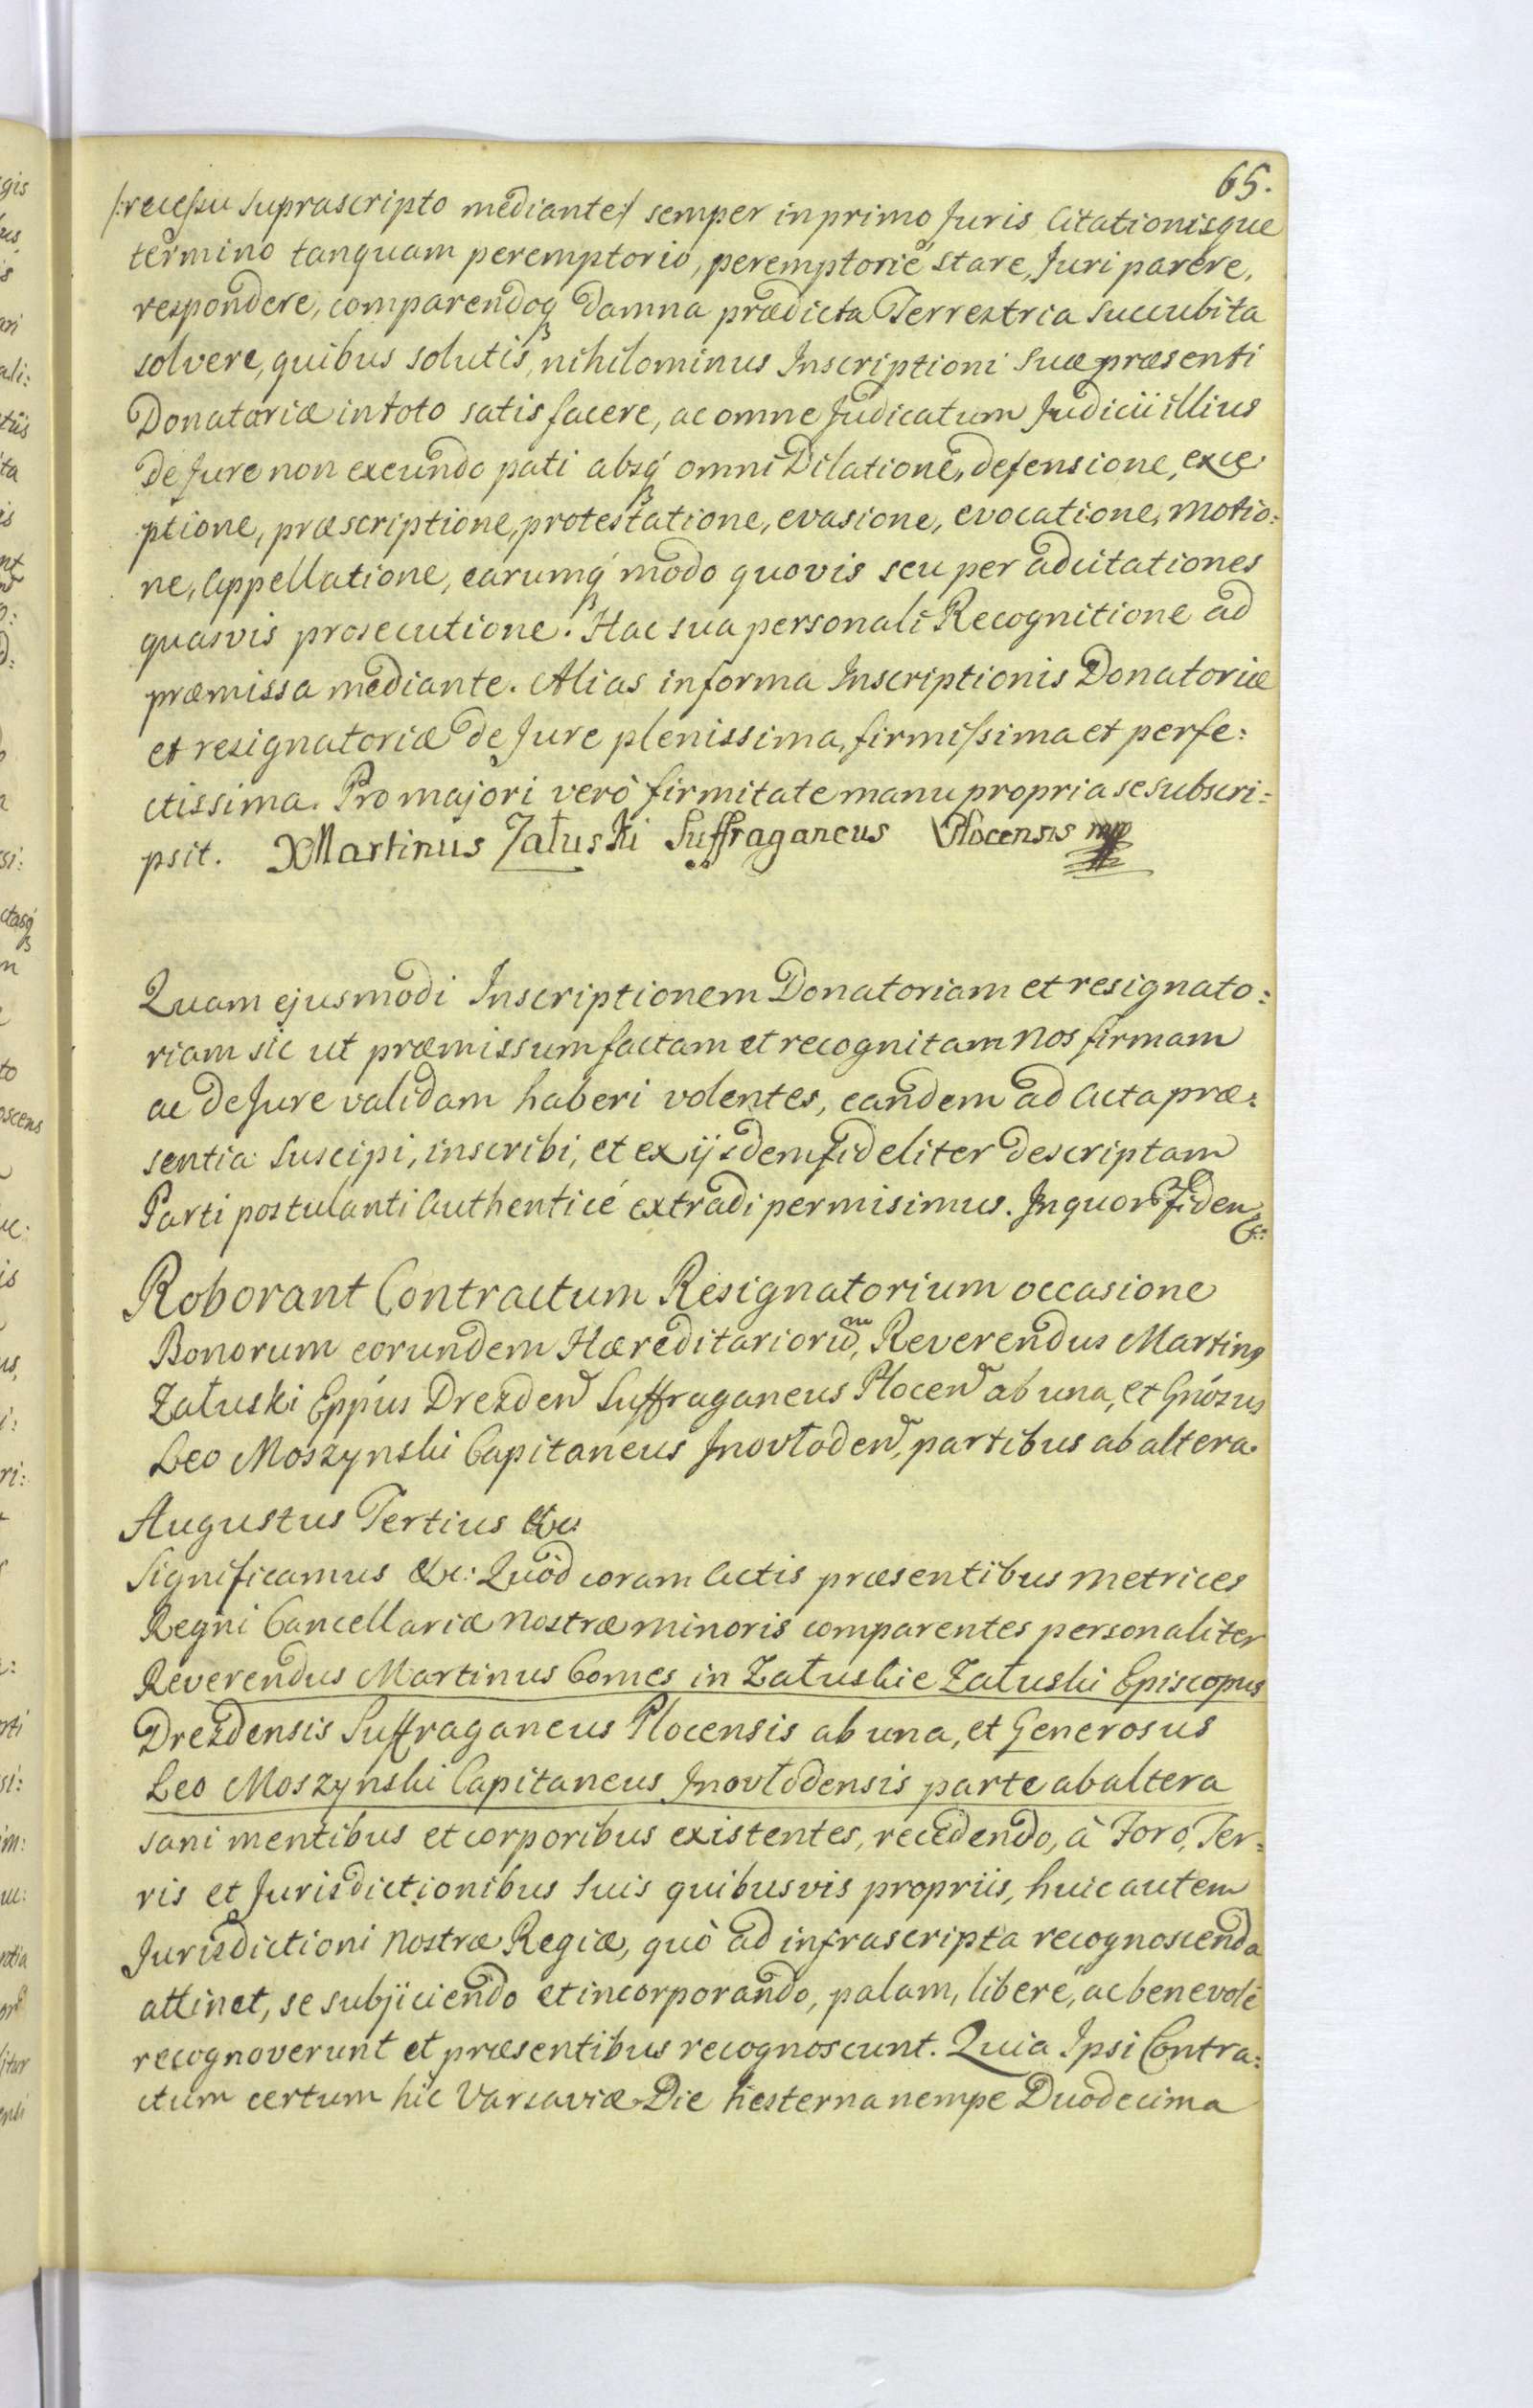 65.
/:recessu Suprascripto mediante:/ semper in primo Juris Citationisque
termino tanquam peremptorio, peremptorie stare, Juri parere,
respondere, comparendoq damna prædicta Terrestria Succubita
solvere, quibus solutis, nihilominus Inscriptioni Suæ præsenti
Donatoriæ in toto satisfacere, ac omne Judicatum Judicii illius
de Jure non exeundo pati absq omni Dilatione, defensione, exce
ptione, præscriptione, protestatione, evasione, evocatione, motio:
ne, Appellatione, earumq modo quovis seu per adcitationes
quasvis prosecutione. Hac sua personali Recognitione ad
præmissa mediante. Alias in forma Inscriptionis Donatoriæ
et resignatoriæ de Jure plenissima, firmissima et perfe:
ctissima. Pro majori verò firmitate manu propria se subscri:
psit. XMartinus Załuski Suffraganeus Plocensis mpp
Quam ejusmodi Inscriptionem Donatoriam et resignato:
riam sic ut præmissum factam et recognitam nos firmam
ac de Jure validam haberi volentes, eandem ad Acta præ:
sentia suscipi, inscribi, et ex ijsdem fideliter descriptam
Parti postulanti Authenticé extradi permisimus. In quor fidem
&:
Roborant Contractum Resignatorium occasione
Bonorum eorundem Hæreditariorum, Reverendus Martinus
Załuski Eppus Drezden Suffraganeus Plocen ab una, et Gnosus
Leo Moszynski Capitaneus Inovłoden, partibus ab altera.
Augustus Tertius &c:
Significamus &c: Quod coram Actis præsentibus metrices
Regni Cancellariæ nostræ minoris comparentes personaliter
Reverendus Martinus Comes in Załuskie Załuski Episcopus
Drezdensis Suffraganeus Plocensis ab una, et Generosus
Leo Moszynski Capitaneus Inovłodensis parte ab altera
sani mentibus et corporibus existentes, recedendo, à Foro, Ter:
ris et Jurisdictionibus Suis quibusvis propriis, huic autem
Jurisdictioni nostræ Regiæ, quò ad infrascripta recognoscenda
attinet, se subjiciendo et incorporando, palam, liberé, ac benevolé
recognoverunt et præsentibus recognoscunt. Quia Ipsi Contra:
ctum certum hic Varsaviæ Die hesterna nempe Duodecima